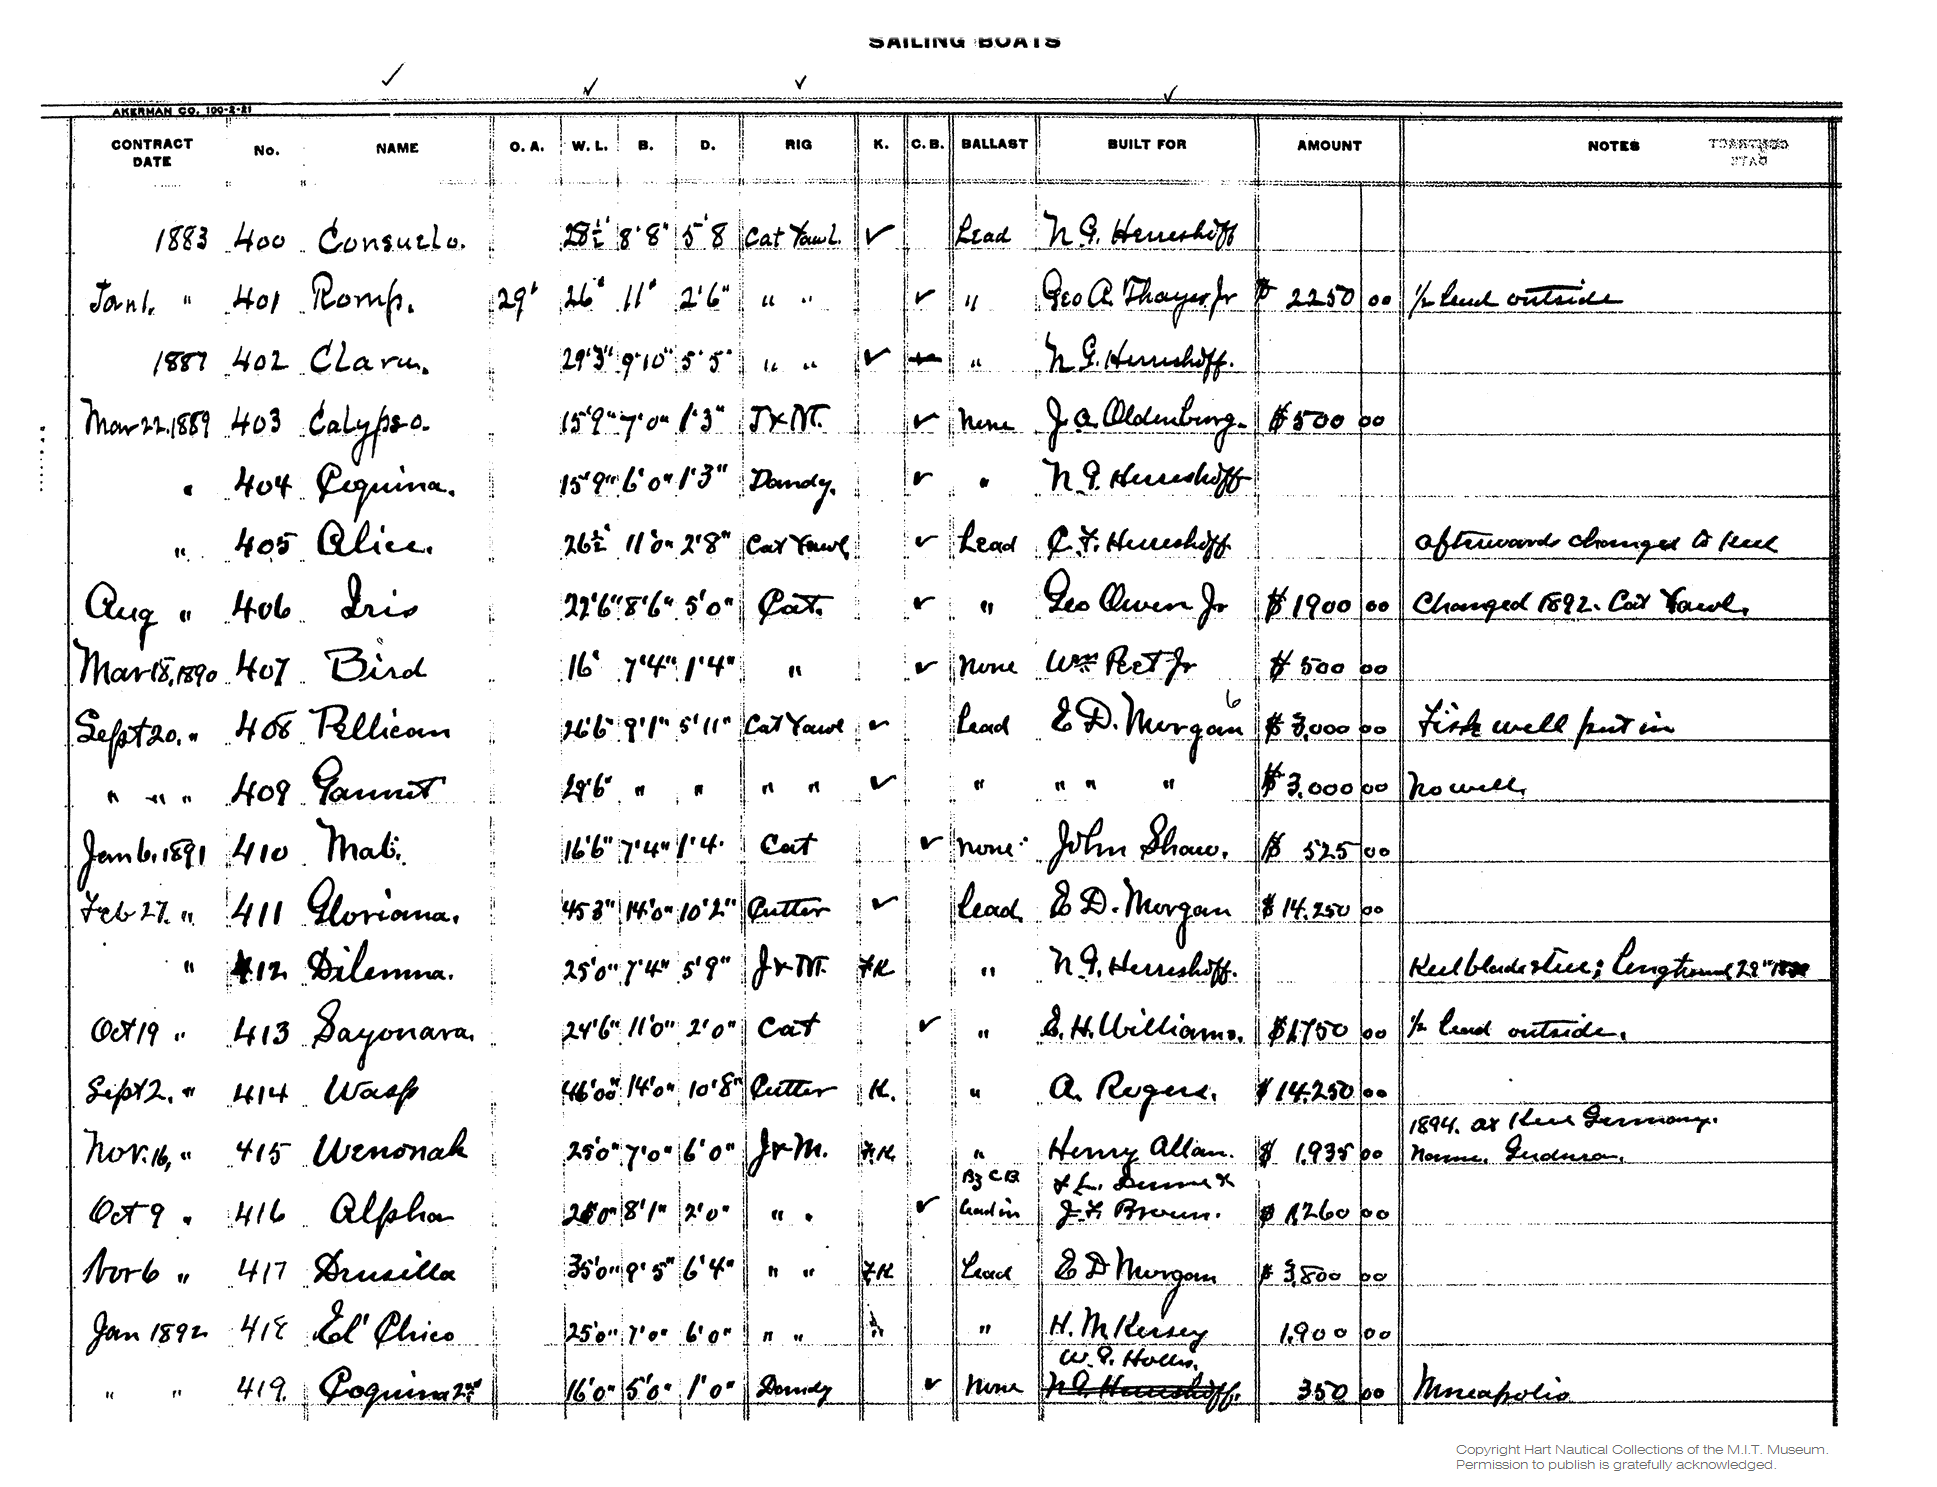 SAILING BOATS
AKERMAN CO. 100-2-21
CONTRACT DATE No. NAME O. A. W. L. B. D. RIG K. C. B. BALLAST BUILT FOR AMOUNT NOTES
1883 400 Consuelo. 28½' 8'8" 5'8 Cat Yawl. ✓ Lead N. G. Herreshoff
Jan 1. " 401 Romp. 29' 26' 11' 2'6" " " ✓ " Geo A. Thayer Jr $ 2250 00 ½ lead outside
1887 402 Clara. 29'3" 9'10" 5'5" " " ✓ " N. G. Herreshoff.
Mar 22. 1889 403 Calypso. 15'9" 7'0" 1'3" J & M. ✓ None J. A. Oldenburg. $ 500 00
" 404 Coquina. 15'9" 6'0" 1'3" Dandy. ✓ " N. G. Herreshoff
" 405 Alice. 26½' 11'0" 2'8" Cat Yawl ✓ Lead C. F. Herreshoff afterwards changed to keel
Aug " 406 Iris 22'6" 8'6" 5'0" Cat. ✓ " Geo Owen Jr $ 1900 00 Changed 1892. Cat Yawl.
Mar 18, 1890 407 Bird 16' 7'4" 1'4" " ✓ None Wm Peet Jr $ 500 00
Sept 20. " 408 Pellican 26'6" 9'1" 5'11" Cat Yawl ✓ Lead E. D. Morgan 6 $ 3,000 00 Fish well put in
" " " 409 Gannet 29'6" " " " " ✓ " " " " $ 3.000 00 No well.
Jan 6. 1891 410 Mab. 16'6" 7'4" 1'4. Cat ✓ None John Shaw. $ 525 00
Feb 27. " 411 Gloriana. 45 3" 14'0" 10'2" Cutter ✓ Lead. E. D. Morgan $ 14.250 00
" 412 Dilemma. 25'0" 7'4" 5'9" J & M. F K. " N. G. Herreshoff. Keel blade steel; Lengthened 29"
Oct 19 " 413 Sayonara. 24'6" 11'0" 2'0" Cat ✓ " E. H. Williams. $ 1,750 00 ½ lead outside.
Sept 2. " 414 Wasp 46'00" 14'0" 10'8" Cutter K. " A. Rogers. $ 14.250 00
1894. at Kiel Germany.
Nov. 16, " 415 Wenonah 25'0" 7'0" 6'0" J & M. F. K. " Henry Allan. $ 1.935 00 Name.
C B & L. &
Oct 9 " 416 Alpha 8'1" 2'0" " " ✓ lead in J. F. Brown. $ 1,260 00
Nov 6 " 417 Drusilla 35'0" 9'5" 6'4" " " F K Lead E D Morgan $ 3,800 00
Jan 1892 418 El' Chico 25'0" 7'0" 6'0" " " " " H. M Kersey 1.900 00
W. P. Hollis.
" " 419. Coquina 2nd 16'0" 5'0" 1'0" Dandy ✓ None N. G. Herreshoff. 350 00 Mineapolis
Copyright Hart Nautical Collections of the M.I.T. Museum.
Permission to publish is gratefully acknowledged.